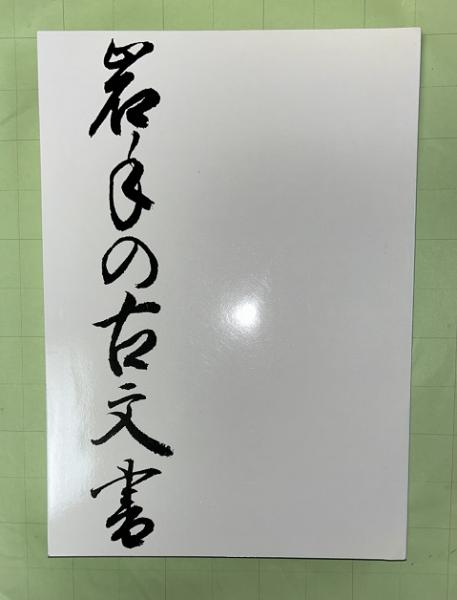 岩手の古文書